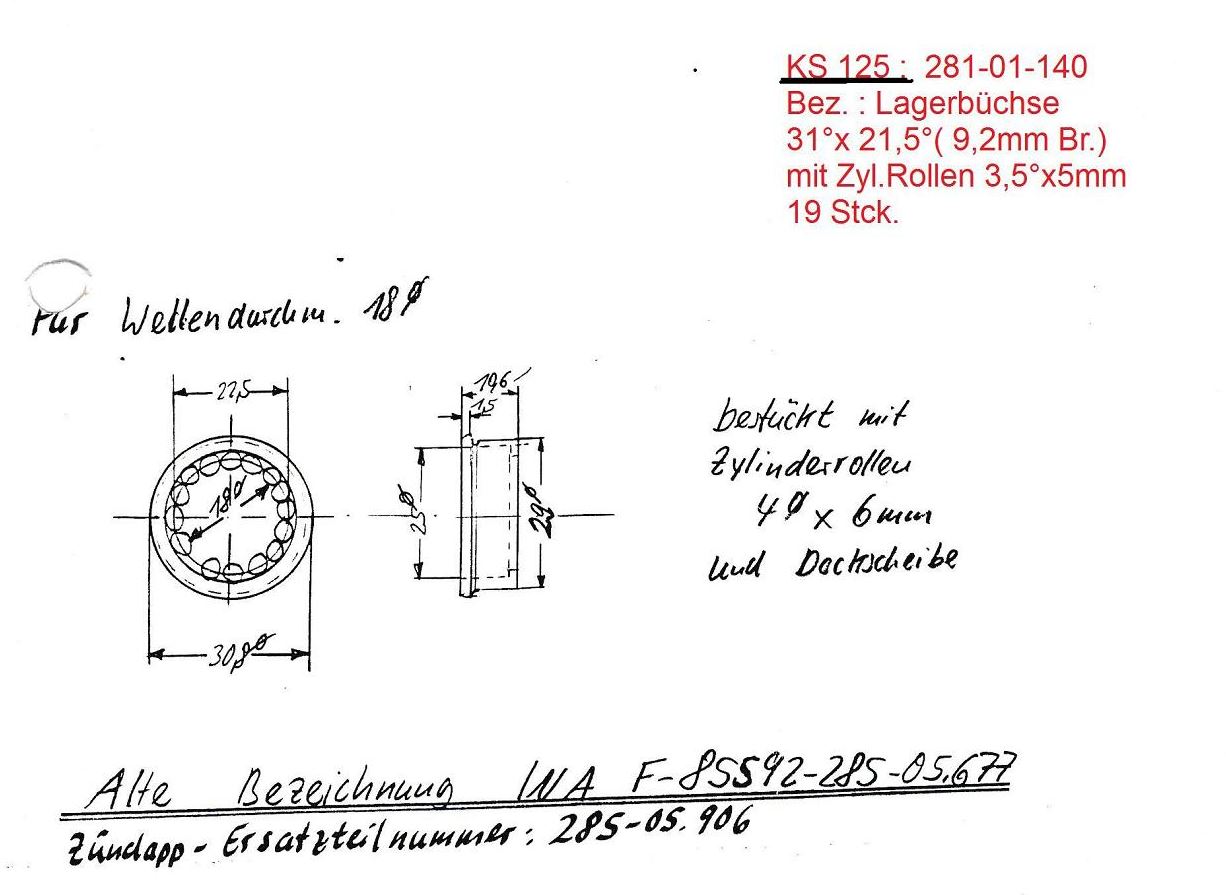 KS 125 : 281-01-140
Bez. : Lagerbüchse
31°x 21,5°( 9,2mm Br.)
mit Zyl.Rollen 3,5°x5mm
19 Stck.
Für Wellendurchm. 18⌀
22,5
18⌀
30,8⌀
1,5
25⌀
29⌀
bestückt mit
Zylinderrollen
4⌀ x 6mm
und Deckscheibe
Alte Bezeichnung INA F-85592-285-05.677
Zündapp - Ersatzteilnummer: 285-05.906